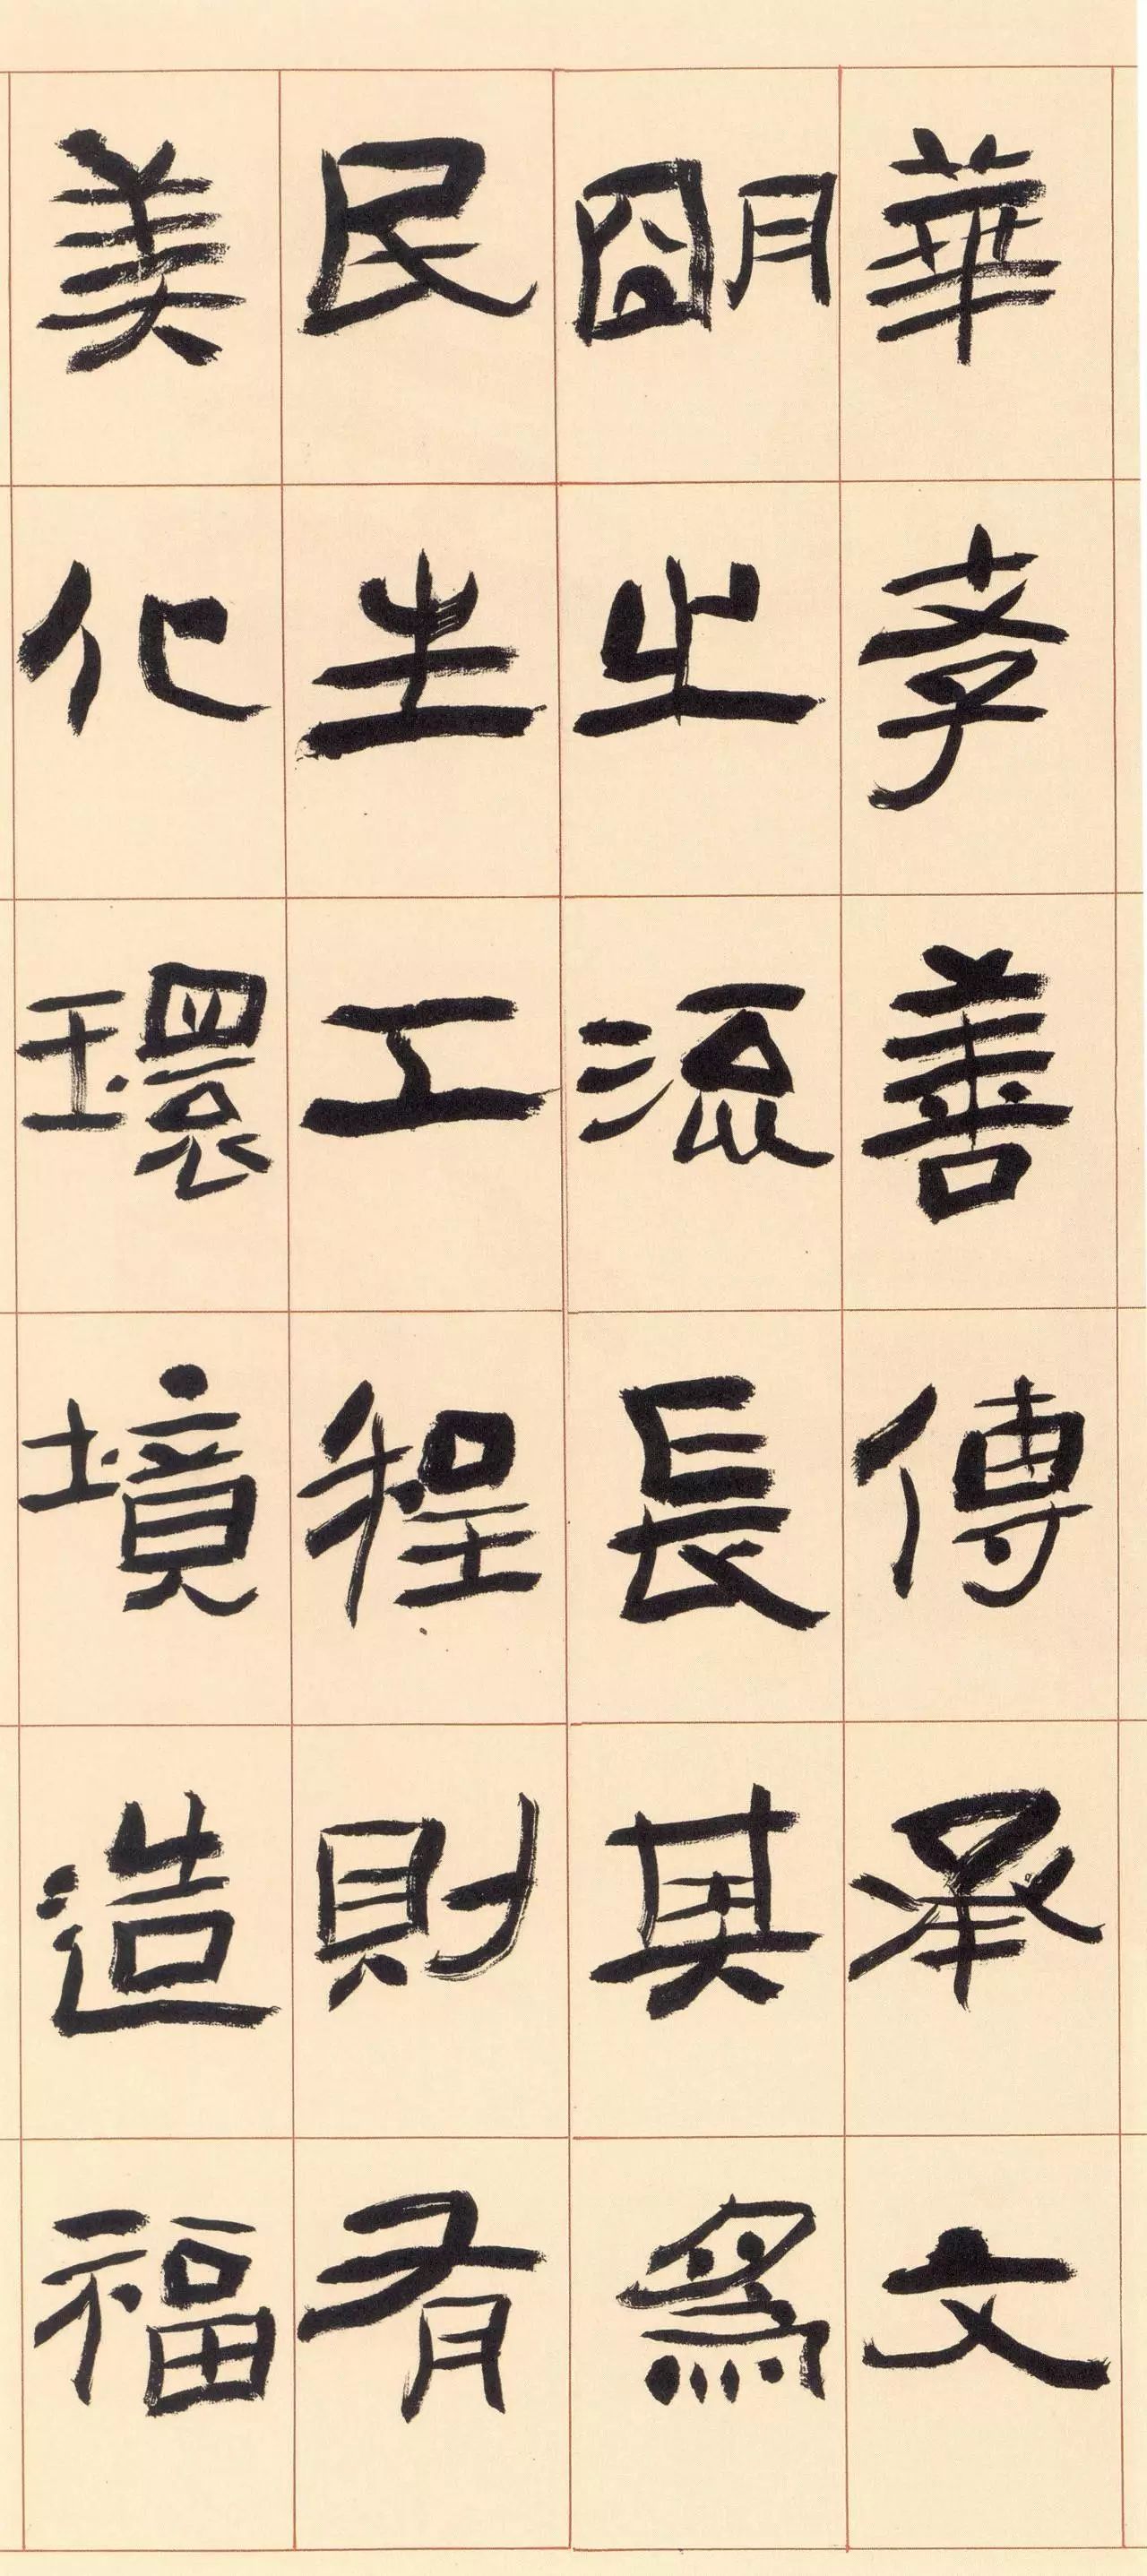 華孝善傳承文
朙之流長其爲
民生工程則有
美化環境造福